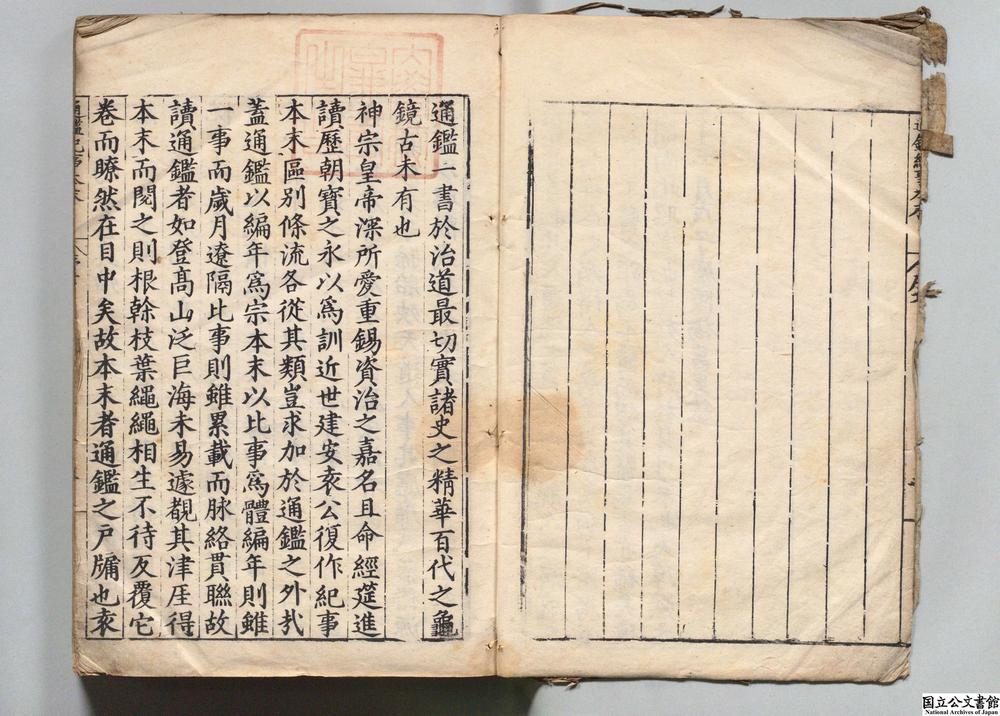 通鑑一書於治道最切實諸史之精華百代之龜
鏡古未有也
神宗皇帝深所愛重錫資治之嘉名且命經筵進
讀歷朝寶之永以為訓近世建安袁公復作紀事
本末區别條流各從其類豈求加於通鑑之外㢤
蓋通鑑以編年爲宗本末以比事爲體編年則雖
一事而歲月遼隔比事則雖累載而脉絡貫聮故
讀通鑑者如登髙山泛巨海未易遽覩其津厓得
本末而閱之則根榦枝葉繩繩相生不待反覆它
卷而瞭然在目中矣故本末者通鑑之戸牖也袁
国立公文書館
National Archives of Japan